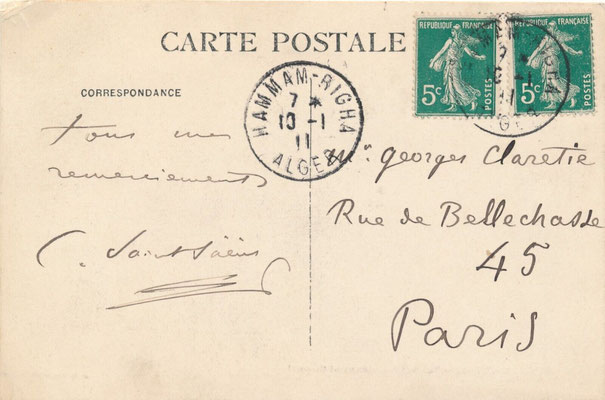 CARTE POSTALE
CORRESPONDANCE
RÉPUBLIQUE FRANÇAISE
5c
POSTES
RÉPUBLIQUE FRANÇAISE
5c
POSTES
HAMMAM-RIGHA
7 *
10 -1
11
ALGER
Tous mes
remerciements
C. Saint-Saëns
Mr. Georges Claretie
Rue de Bellechasse
45
Paris